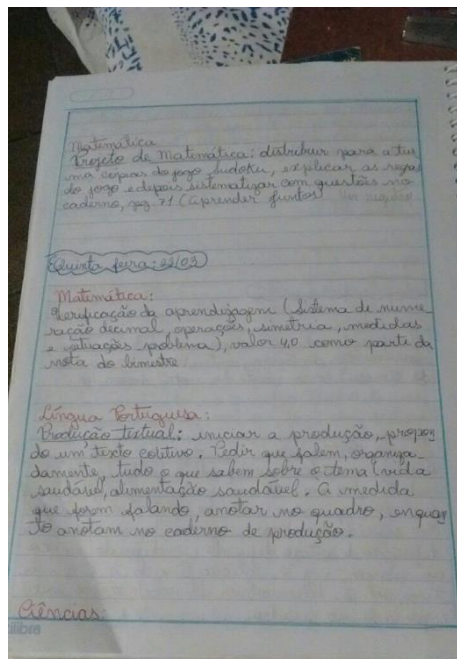 Matemática
Projeto de Matemática: distribuir para a tur
ma cópias do jogo Sudoku, explicar as regras
do jogo e depois sistematizar com questões no
caderno, pág. 71 (Aprender Juntos)
Quinta feira: 22/03
Matemática:
Verificação da aprendizagem (Sistema de nume
ração decimal, operações, simetria, medidas
e situações problema), valor 4,0 como parte da
nota do bimestre.
Língua Portuguesa:
Produção textual: iniciar a produção, propon
do um texto coletivo. Pedir que falem, organiza
damente, tudo o que sabem sobre o tema (vida
saudável, alimentação saudável. À medida
que forem falando, anotar no quadro, enquan
to anotam no caderno de produção.
Ciências: